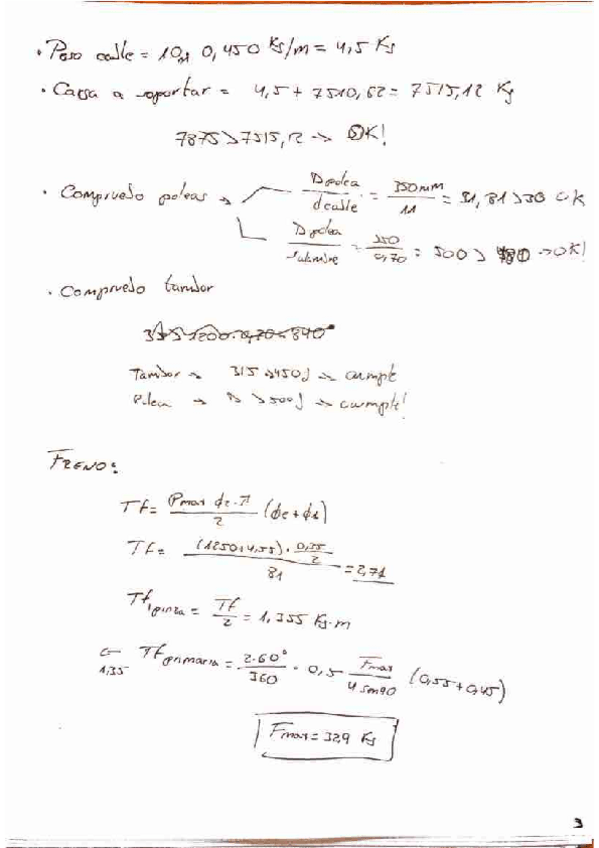 · Peso cable = 10 · 0,450 Kg/m = 4,5 Kg
· Carga a soportar = 4,5 + 7510,62 = 7515,12 Kg
7875 > 7515,12 → OK!
· Compruebo poleas → D polea / d cable = 350mm / 11 = 31,81 > 30 OK
D polea / = 350 / 0,70 = 500 > → OK!
· Compruebo tambor
Tambor → → cumple
Polea → D > 500 → cumple!
FRENO:
Tf = Pmax φe · π / 2 (φe + φi)
Tf = (1250 · 4,55) · 0,55/2 / 81 = 2,71
Tf pinza = Tf / 2 = 1,355 Kg·m
1,35 Tf primaria = 2·60° / 360 · 0,5 Fmax / 4 sen90 (0,55 + 0,45)
Fmax = 32,9 Kg
3